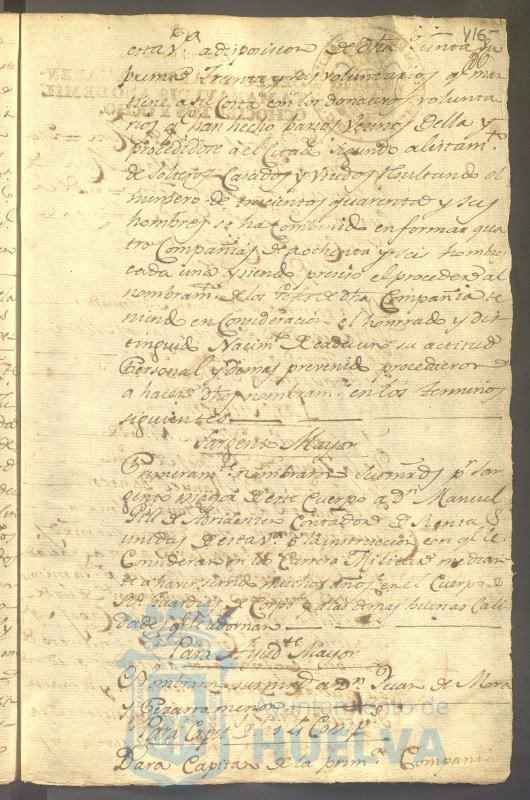 416
esta V.ª a disposicion de dha Junta Su
prema Treinta y seis voluntarios q.e man
tiene a su Costa con los donativos volunta
rios q.e han hecho barios Vecinos della y
procedidose a el Citado Segundo alistam.to
de Solteros Casados y Viudos Resultando el
numero de trecientos quarenta y seis
hombres se ha combenido en formar qua
tro Compañias de a ochenta y seis hombres
cada una y siendo preciso el proceder al
nombram.to de los Jefes de dha Compañia te
niendo en Consideracion el honrrado y dis
tinguido Nacim.to de cada uno su actitud
Personal y demas prevenido procedieron
a hacer dhos nombram.tos en los terminos
siguientes
Sargento Mayor
Primeram.te nombraron sus mrds p.r Sar
gento maior de este Cuerpo a d.n Manuel
de Adriaensen Contador de Rentas
unidas de esta V.a la instruccion con q.e le
Consideran en la Carrera Militar median
te a haver servido muchos años en el Cuerpo de
R.s Guardias de Corps y a las demas buenas Cali
dades q.e le adornan
Para Ayud.te Mayor
Nombraron sus mrds a D.n Juan de Mora
y Pizarro menor
Para Cap.n de la Comp.a
Para Capitan de la prim.a Compañia
Ayuntamiento de
HUELVA